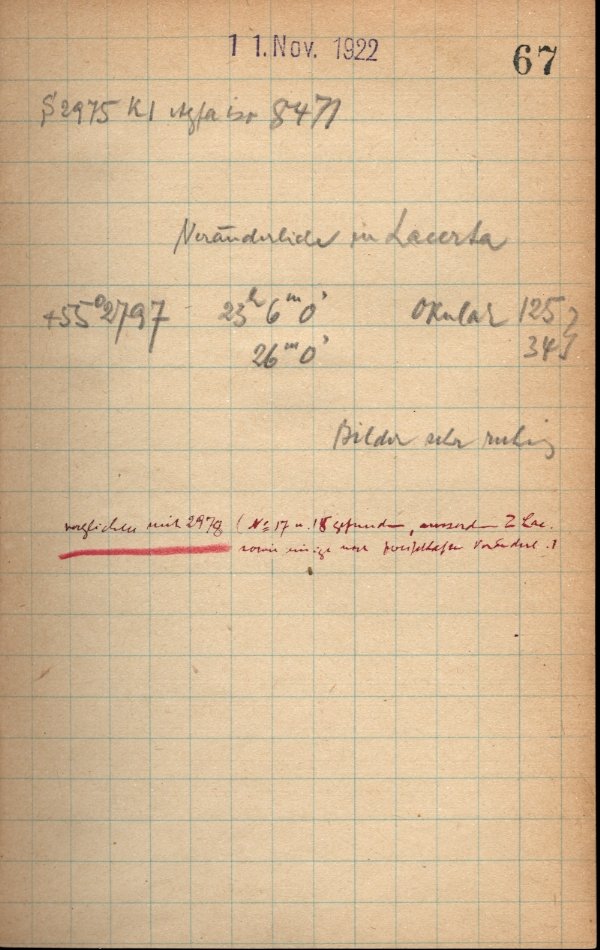 11. Nov. 1922
67
S 2975 Kl Agfa iso 8471
Veränderliche in Lacerta
+55° 2797 23h 6m 0s Okular 125
26m 0s 34
Bilder sehr ruhig
verglichen mit 2978 (No 17 u. 18 gefunden, ausserdem Z Lac.
sowie einige noch zweifelhafte Veränderl.)